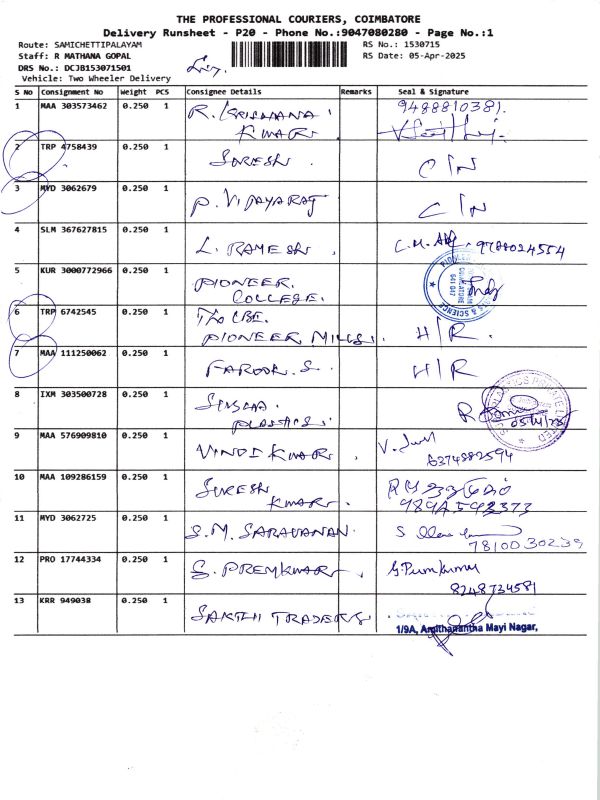 THE PROFESSIONAL COURIERS, COIMBATORE
Delivery Runsheet - P20 - Phone No.:9047080280 - Page No.:1
Route: SAMICHETTIPALAYAM
RS No.: 1530715
Staff: R MATHANA GOPAL
RS Date: 05-Apr-2025
DRS No.: DCJB153071501
Vehicle: Two Wheeler Delivery
S No Consignment No Weight PCS Consignee Details Remarks Seal & Signature
1 MAA 303573462 0.250 1 R. KRISHANA KUMAR 9488810381.
2 TRP 4758439 0.250 1 SURESH . C/N
3 MYD 3062679 0.250 1 P. VIJAYARAJ C/N
4 SLM 367627815 0.250 1 L. RAMESH . 9788024554
5 KUR 3000772966 0.250 1 PIONEER. COLLEGE.
6 TRP 6742545 0.250 1 CBE. PIONEER MILLS. H/R.
7 MAA 111250062 0.250 1 FAROOK. S. H/R
8 IXM 303500728 0.250 1 PLASTICS.
9 MAA 576909810 0.250 1 VINOD KUMAR. 6374882594
10 MAA 109286159 0.250 1 SURESH KUMAR.
11 MYD 3062725 0.250 1 S.M. SARAVANAN. 7810030239
12 PRO 17744334 0.250 1 S. PREMKUMAR. S.Premkumar 8248734581
13 KRR 949038 0.250 1 SAKTHI TRADERS
1/9A, Amithanantha Mayi Nagar,